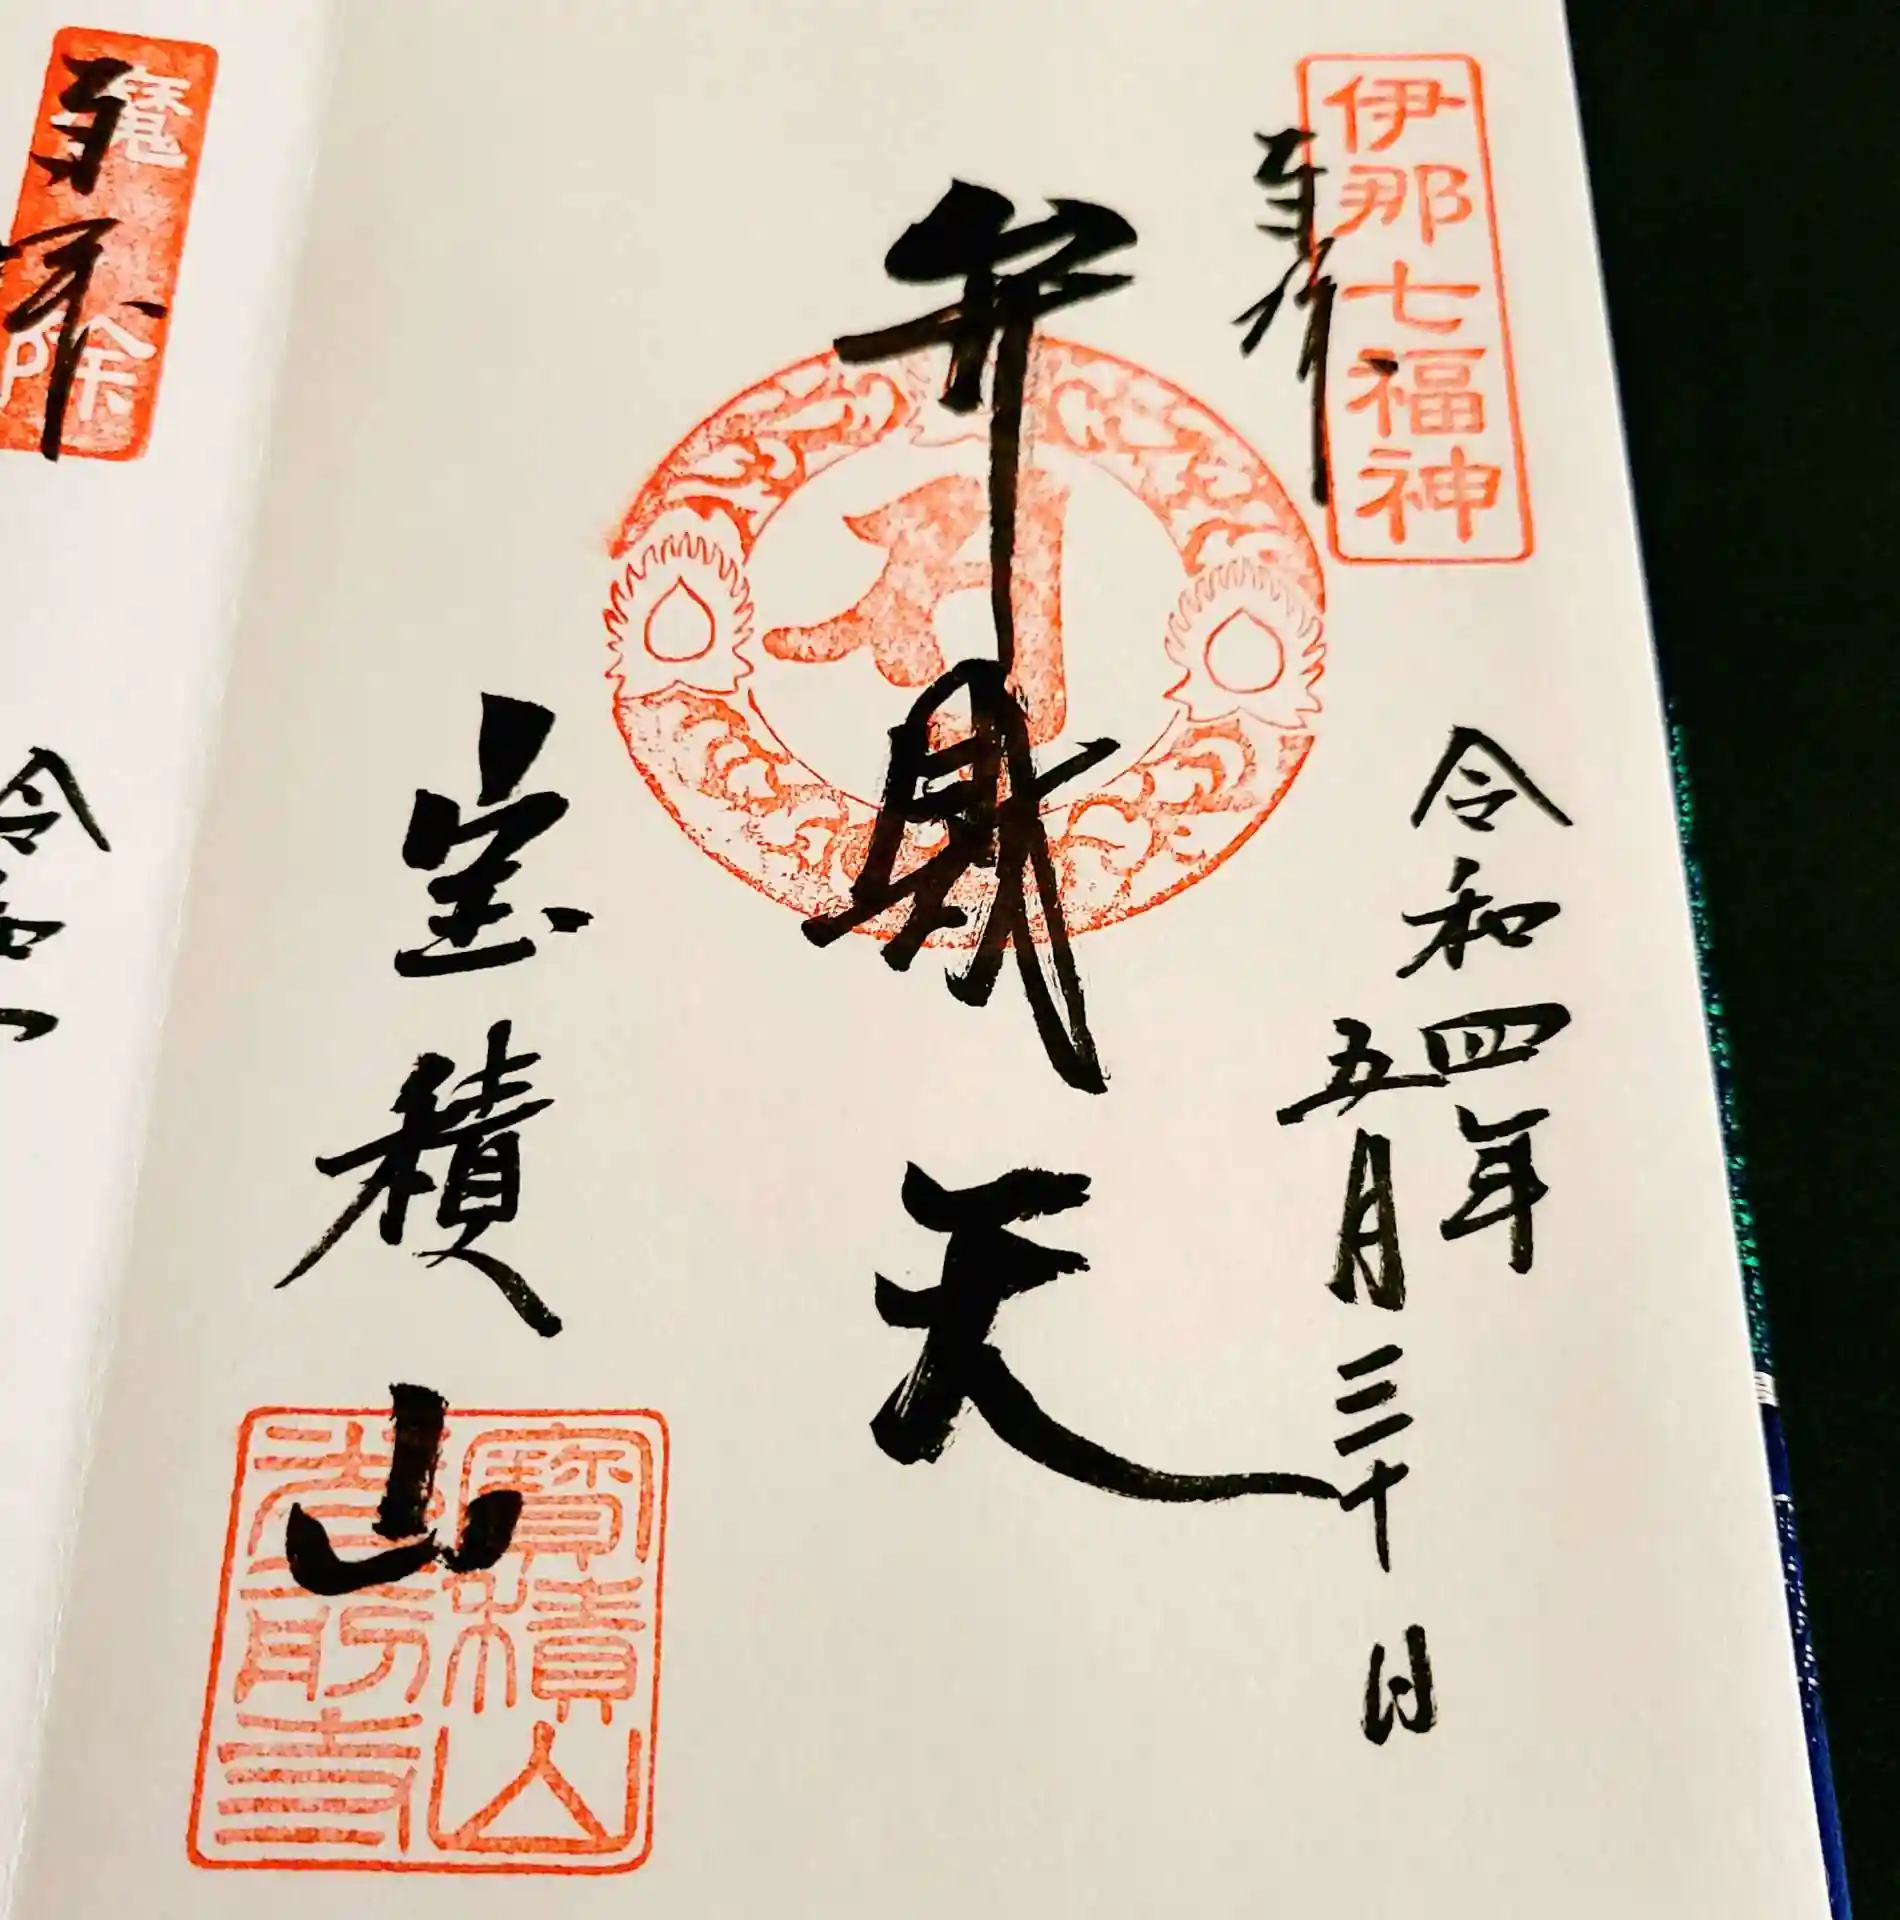 伊那七福神
奉拝
令和四年
五月三十日
弁財天
宝積山
寶積山
光前寺
魔除
奉拝
令和